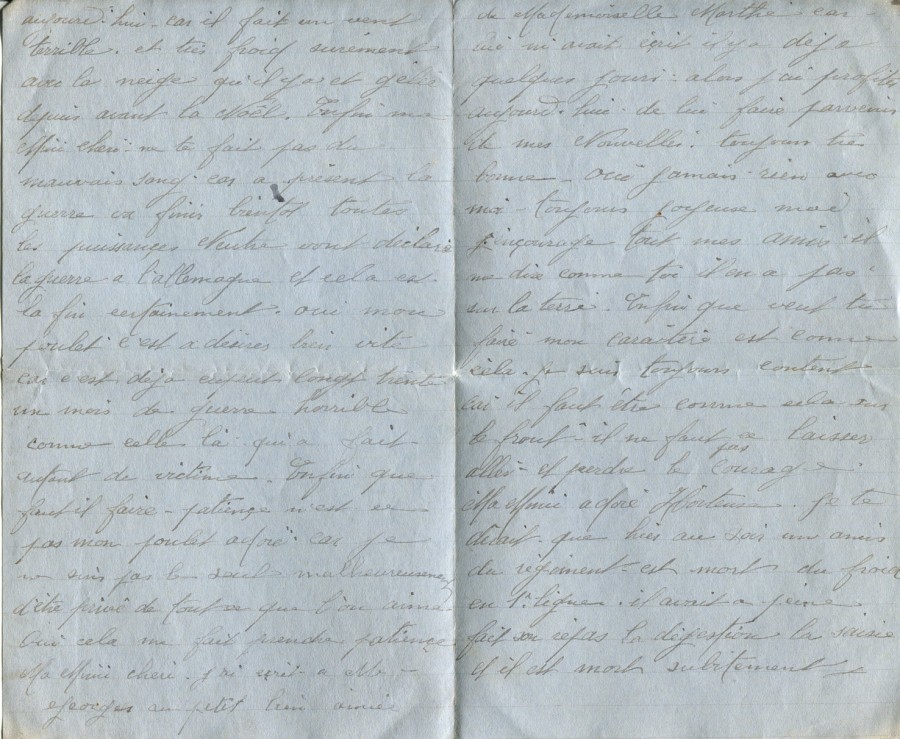 aujourd'hui - car il fait un vent
terrible. et très froid surement
avec la neige qu'il y a et gelée
depuis avant la Noël. Enfin ma
Mimi cheri ne te fait pas du
mauvais sang car a présent la
guerre va finir bientôt toutes
les puissances Neutre vont déclare
la guerre a l'allemagne et cela est
la fin certainement. oui mon
poulet c'est a désirer bien vite
car c'est déja long trente
un mois de guerre horrible
comme celle là qui a fait
autant de victime. Enfin que
faut il faire - patiençe n'est ce
pas mon poulet adoré. car je
ne suis pas le seul malheureusement
d'être privé de tout ce que l'on aime
Oui cela me fait prendre patiençe
Ma Mimi cheri. j'ai écrit a Mr
Georges un petit bien aimée
de Mademoiselle Marthe car
lui m'avait écrit il y a déja
quelques jours. alors j'ai profité
aujourd'hui de lui faire parvenir
de mes Nouvelles. toujours très
bonne - Oui jamais rien avec
moi - toujours joyeuse moi
j'encourage tout mes amis. il
me dise comme toi il en a pas
sur la terre. Enfin que veut tu
faire mon caractère est comme
cela. je suis toujours content
car il faut être comme cela sur
le front - il ne faut pas ce laisser
aller - et perdre le courage
Ma Mimi adoré Hortense. Je te
dirait que hier au soir un amis
du régiment - est mort du froid
en 1e ligne. il avait a peine
fait son repas la digestion la saisie
et il est mort subitement